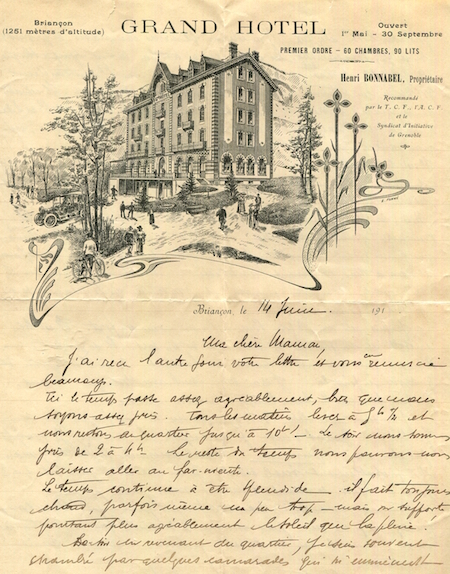 Briançon
(1251 mètres d'altitude)
GRAND HOTEL
Ouvert
1er Mai - 30 Septembre
PREMIER ORDRE — 60 CHAMBRES, 90 LITS
Henri BONNABEL, Propriétaire
Recommandé
par le T. C. F., l'A. C. F
et le
Syndicat d'Initiative
de Grenoble
Briançon, le 14 Juin 191
Ma chère Maman
J'ai reçu l'autre jour votre lettre et vous en remercie
beaucoup.
Ici le temps passe assez agréablement, bien que nous
soyons assez pris. Tous les matins lever à 5h ½ et
nous restons au quartier jusqu'à 10h — Le soir nous sommes
pris de 2 à 4h. Le reste du temps nous pouvons nous
laisser aller au far-niente.
Le temps continue à être splendide — il fait toujours
chaud, parfois même un peu trop — mais on supporte
pourtant plus agréablement le soleil que la pluie.
en revenant du quartier, je suis souvent
chambré par quelques camarades qui m'emmènent